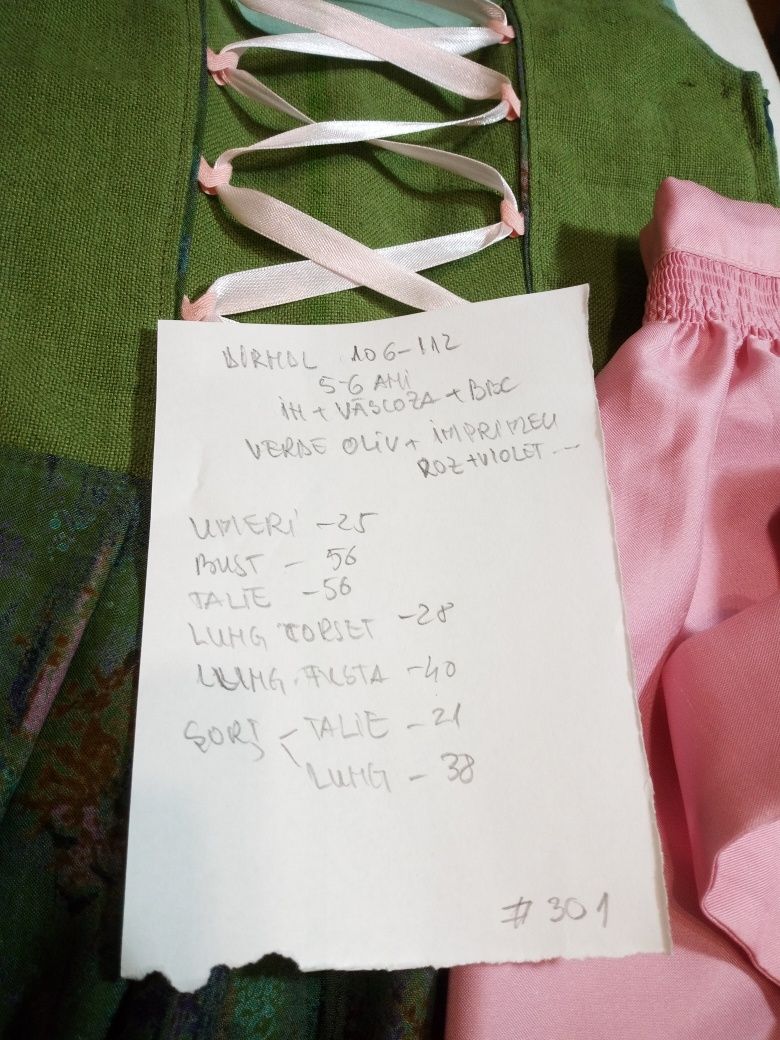 DIRNDL 106-112
5-6 ANI
IN + VÂSCOZA + BBC
VERDE OLIV + IMPRIMEU
ROZ + VIOLET --
UMERI - 25
BUST - 56
TALIE - 56
LUNG CORSET - 28
LUNG. FUSTA - 40
ȘORȚ - TALIE - 21
LUNG - 38
# 301